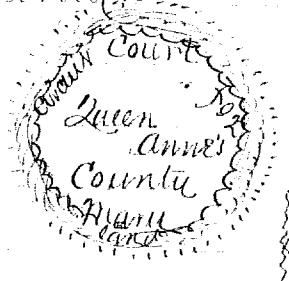 Circuit Court For
Queen
Anne's
County
Mary
land